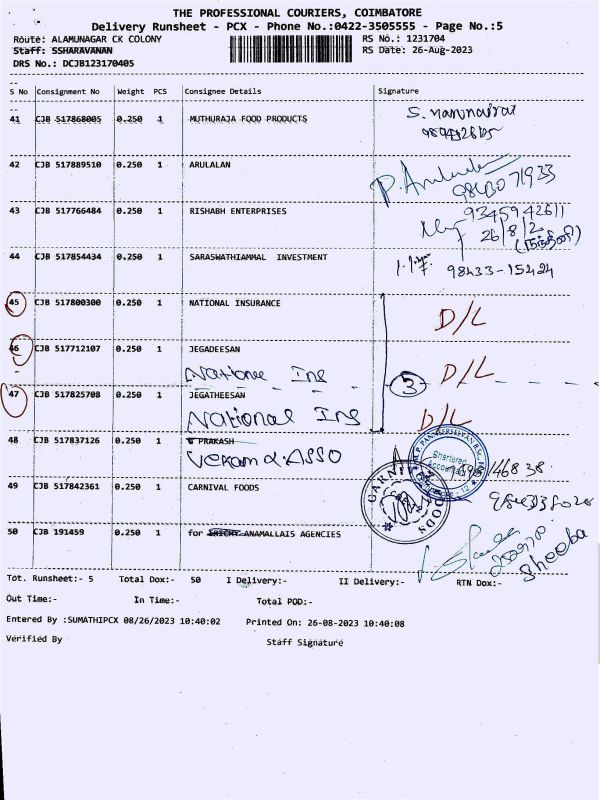 THE PROFESSIONAL COURIERS, COIMBATORE
Delivery Runsheet - PCX - Phone No.:0422-3505555 - Page No.:5
Route: ALAMUNAGAR CK COLONY RS No.: 1231704
Staff: SSHARAVANAN RS Date: 26-Aug-2023
DRS No.: DCJB123170405
S No Consignment No Weight PCS Consignee Details Signature
41 CJB 517868005 0.250 1 MUTHURAJA FOOD PRODUCTS
42 CJB 517889510 0.250 1 ARULALAN
P. Arulalan
98430 71933
43 CJB 517766484 0.250 1 RISHABH ENTERPRISES 9345942611
26/8/2
44 CJB 517854434 0.250 1 SARASWATHIAMMAL INVESTMENT
98433-15424
45 CJB 517800300 0.250 1 NATIONAL INSURANCE D/L
46 CJB 517712107 0.250 1 JEGADEESAN
Nationee Ins 3 D/L
47 CJB 517825708 0.250 1 JEGATHEESAN
National Ins D/L
48 CJB 517837126 0.250 1 PRAKASH
Chartered
Accountant
49 CJB 517842361 0.250 1 CARNIVAL FOODS
50 CJB 191459 0.250 1 for TRICHY ANAMALLAIS AGENCIES
sheeba
Tot. Runsheet:- 5 Total Dox:- 50 I Delivery:- II Delivery:- RTN Dox:-
Out Time:- In Time:- Total POD:-
Entered By :SUMATHIPCX 08/26/2023 10:40:02 Printed On: 26-08-2023 10:40:08
Verified By Staff Signature